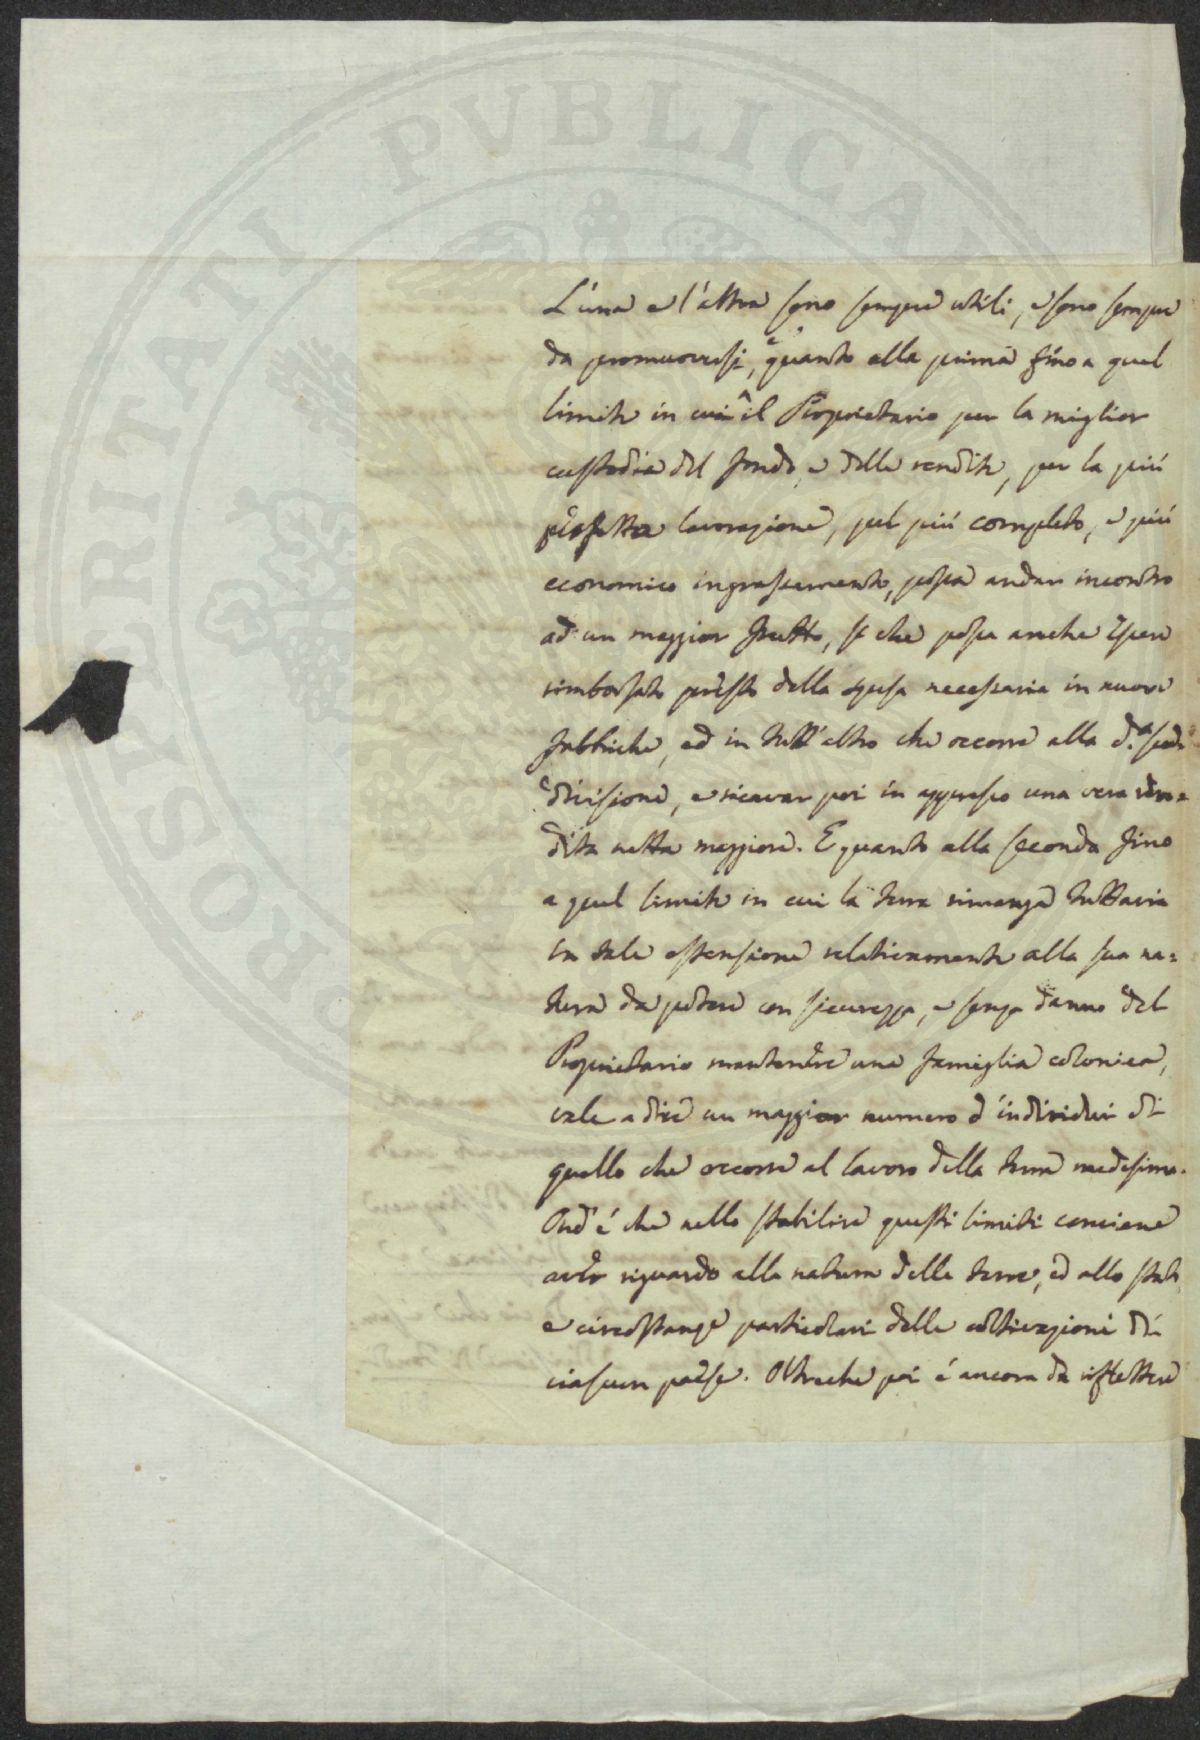 L'una e l'altra sono sempre utili, e sono sempre
da promuoversi, e quanto alla prima fino a quel
limite in cui il Proprietario per la miglior
custodia del fondo, e delle rendite, per la più
perfetta lavorazione, pel più completo, e più
economico ingrassamento, possa andar incontro
ad un maggior frutto, sì che possa anche essere
rimborsato presto della spesa necessaria in nuove
fabbriche, ed in tutt'altro che occorre alla d.a
divisione, e ricavar poi in appresso una vera ren=
dita netta maggiore. E quanto alla seconda fino
a quel limite in cui la terra rimanga tuttavia
in tale estensione relativamente alla sua na=
tura da potere con sicurezza, e senza danno del
Proprietario mantenere una famiglia colonica,
vale a dire un maggior numero d'individui di
quello che occorre al lavoro della terra medesima.
Ond'è che nello stabilire questi limiti conviene
aver riguardo alla natura delle terre, ed allo stato,
e circostanze particolari delle coltivazioni di
ciascun paese. Oltreché poi è ancora da riflettere
PROSPERITATI PVBLICAE